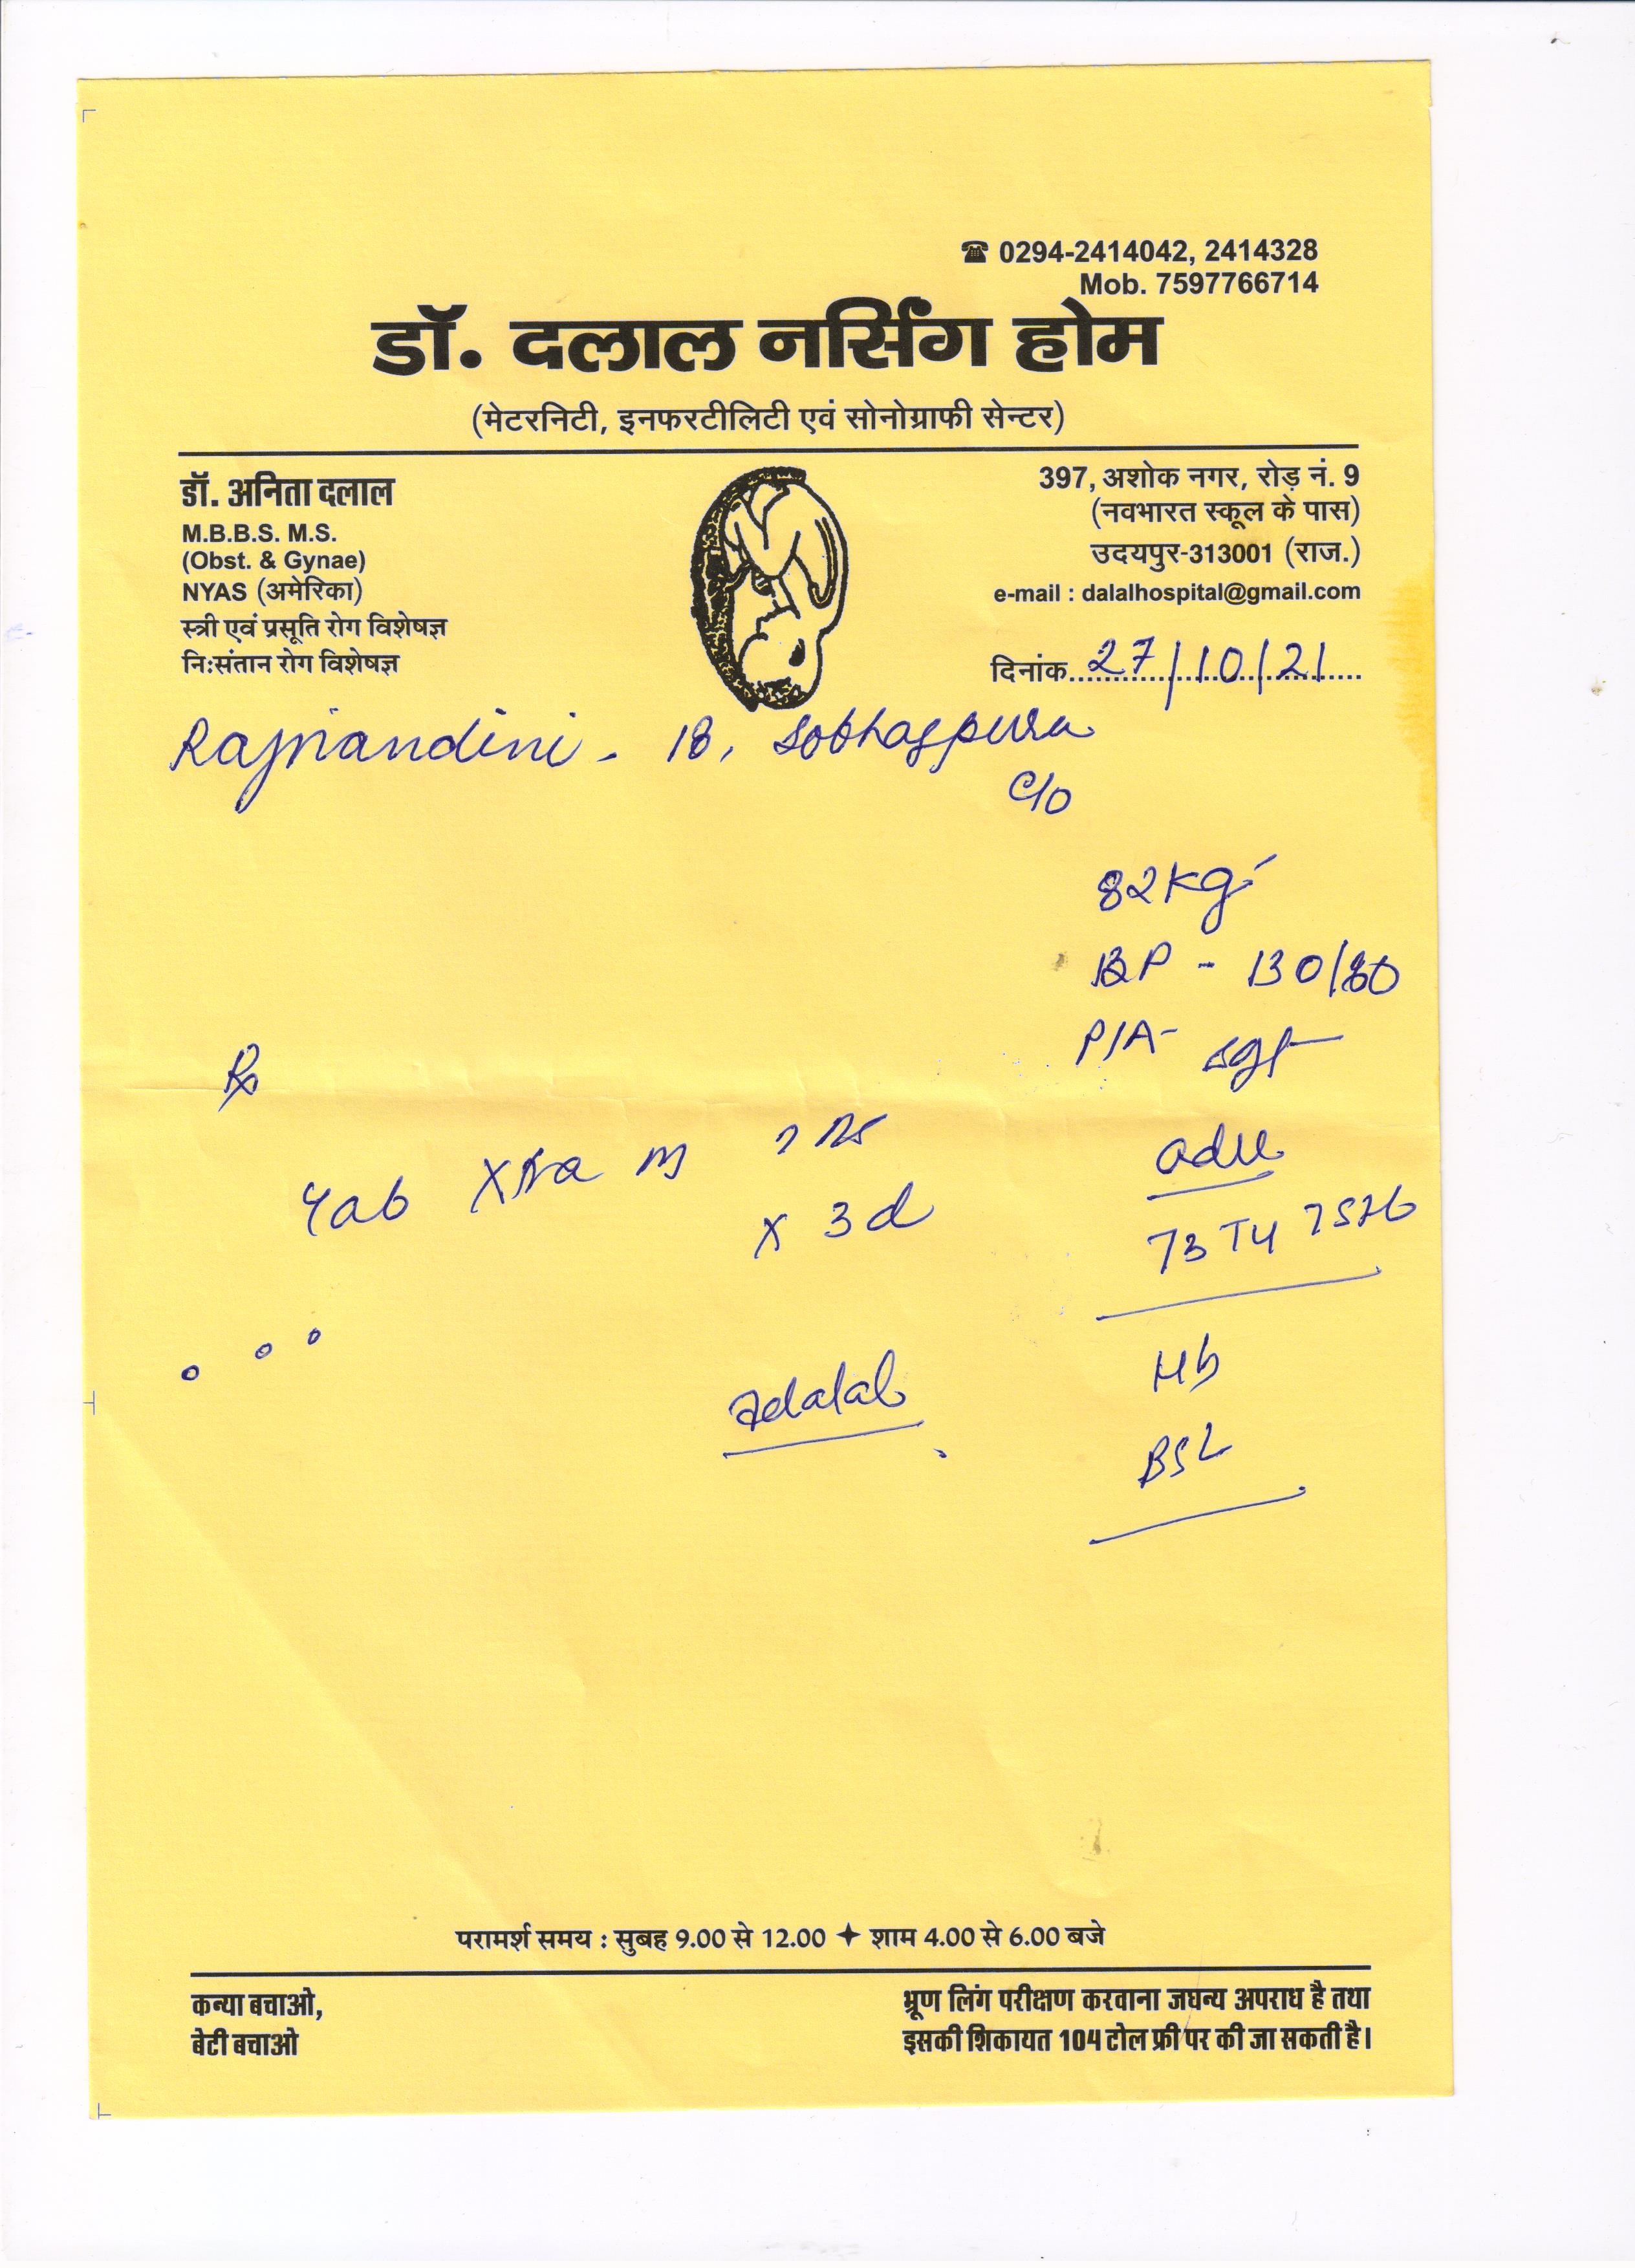 ☎ 0294-2414042, 2414328
Mob. 7597766714
डॉ. दलाल नर्सिंग होम
(मेटरनिटी, इनफरटीलिटी एवं सोनोग्राफी सेन्टर)
डॉ. अनिता दलाल
M.B.B.S. M.S.
(Obst. & Gynae)
NYAS (अमेरिका)
स्त्री एवं प्रसूति रोग विशेषज्ञ
निःसंतान रोग विशेषज्ञ
397, अशोक नगर, रोड़ नं. 9
(नवभारत स्कूल के पास)
उदयपुर-313001 (राज.)
e-mail : dalalhospital@gmail.com
दिनांक 27/10/21
Rajnandini - 18, Sobhagpura
C/o
82 kg
BP - 130/80
P/A -
Rx
Tab
x 3d
T3 T4 TSH
Hb
BSL
Adalal
परामर्श समय : सुबह 9.00 से 12.00 ✦ शाम 4.00 से 6.00 बजे
कन्या बचाओ,
बेटी बचाओ
भ्रूण लिंग परीक्षण करवाना जघन्य अपराध है तथा
इसकी शिकायत 104 टोल फ्री पर की जा सकती है।